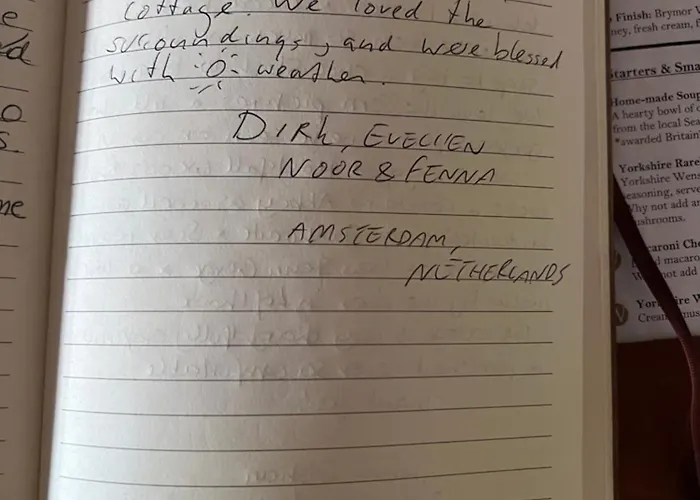 cottage. We loved the
surroundings, and were blessed
with weather.
DIRK, EVELIEN
NOOR & FENNA
AMSTERDAM,
NETHERLANDS
e
O
S.
me
Finish: Brymor
ney, fresh cream,
Starters & Sma
Home-made Soup
A hearty bowl of
from the local Sea
*awarded Britain
Yorkshire Rare
Yorkshire Wens
easoning, serve
Why not add a
ushrooms.
caroni Che
d macaro
not add
Yor ire W
Crea mus
V